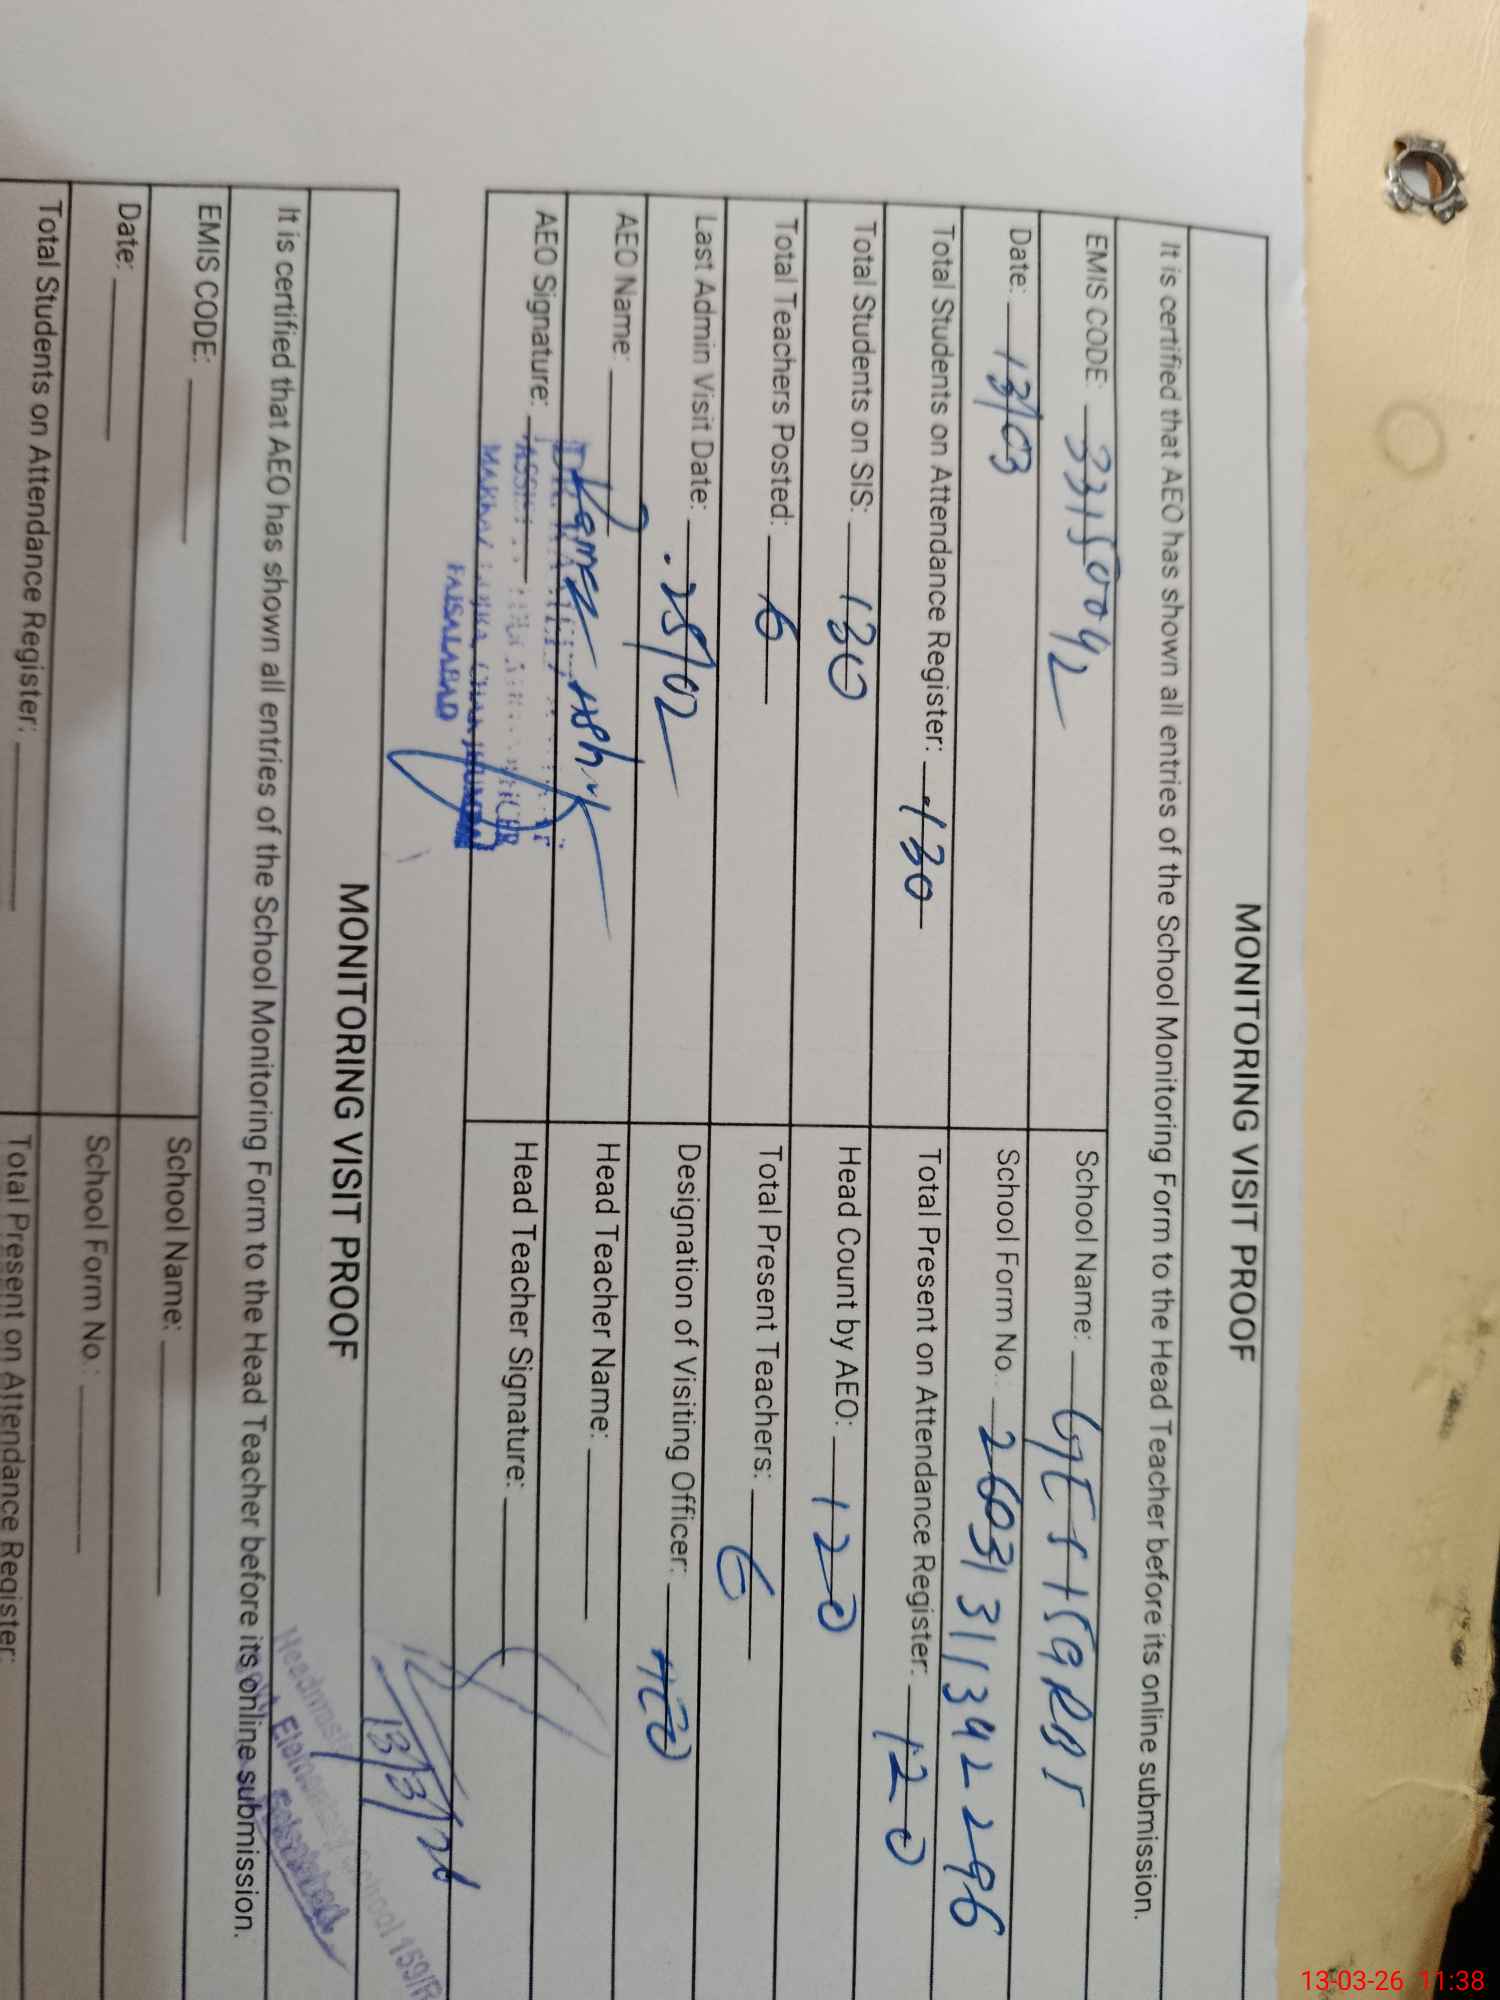 MONITORING VISIT PROOF
It is certified that AEO has shown all entries of the School Monitoring Form to the Head Teacher before its online submission.
EMIS CODE: 33150092 School Name:
Date: 13/03 School Form No.: 2603131134 2296
Total Students on Attendance Register: 130 Total Present on Attendance Register: 120
Total Students on SIS: 130 Head Count by AEO: 120
Total Teachers Posted: 6 Total Present Teachers: 6
Last Admin Visit Date: 25/02 Designation of Visiting Officer:
AEO Name: Head Teacher Name:
AEO Signature: Head Teacher Signature:
FAISALABAD
13/3/26
MONITORING VISIT PROOF
It is certified that AEO has shown all entries of the School Monitoring Form to the Head Teacher before its online submission.
EMIS CODE: School Name:
Date: School Form No.:
Total Students on Attendance Register: Total Present on Attendance Register:
13-03-26 11:38